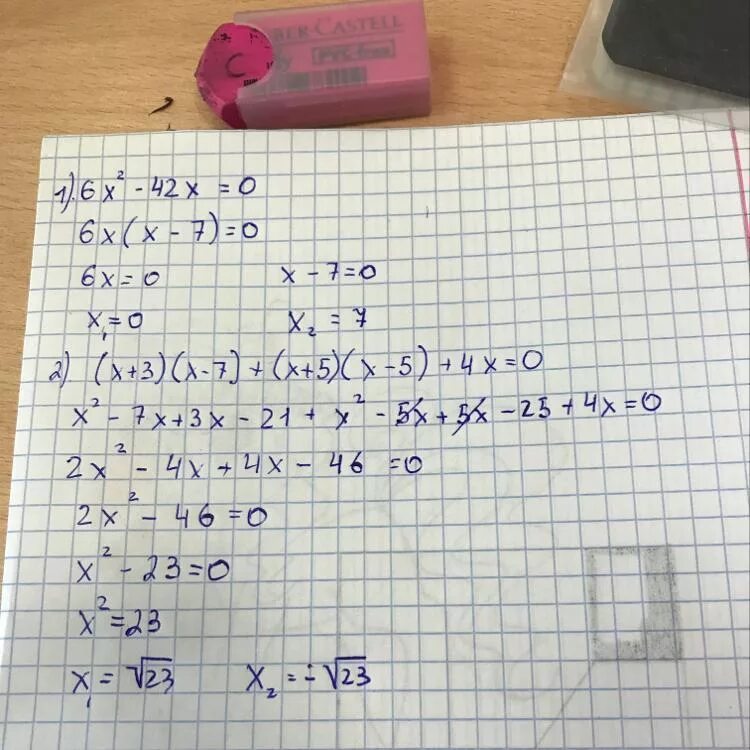 BER CASTELL
PVC-free
C
1). 6x² - 42x = 0
6x(x - 7) = 0
6x = 0 x - 7 = 0
x₁ = 0 x₂ = 7
2). (x+3)(x-7) + (x+5)(x-5) + 4x = 0
x² - 7x + 3x - 21 + x² - 5x + 5x - 25 + 4x = 0
2x² - 4x + 4x - 46 = 0
2x² - 46 = 0
x² - 23 = 0
x² = 23
x₁ = √23 x₂ = -√23